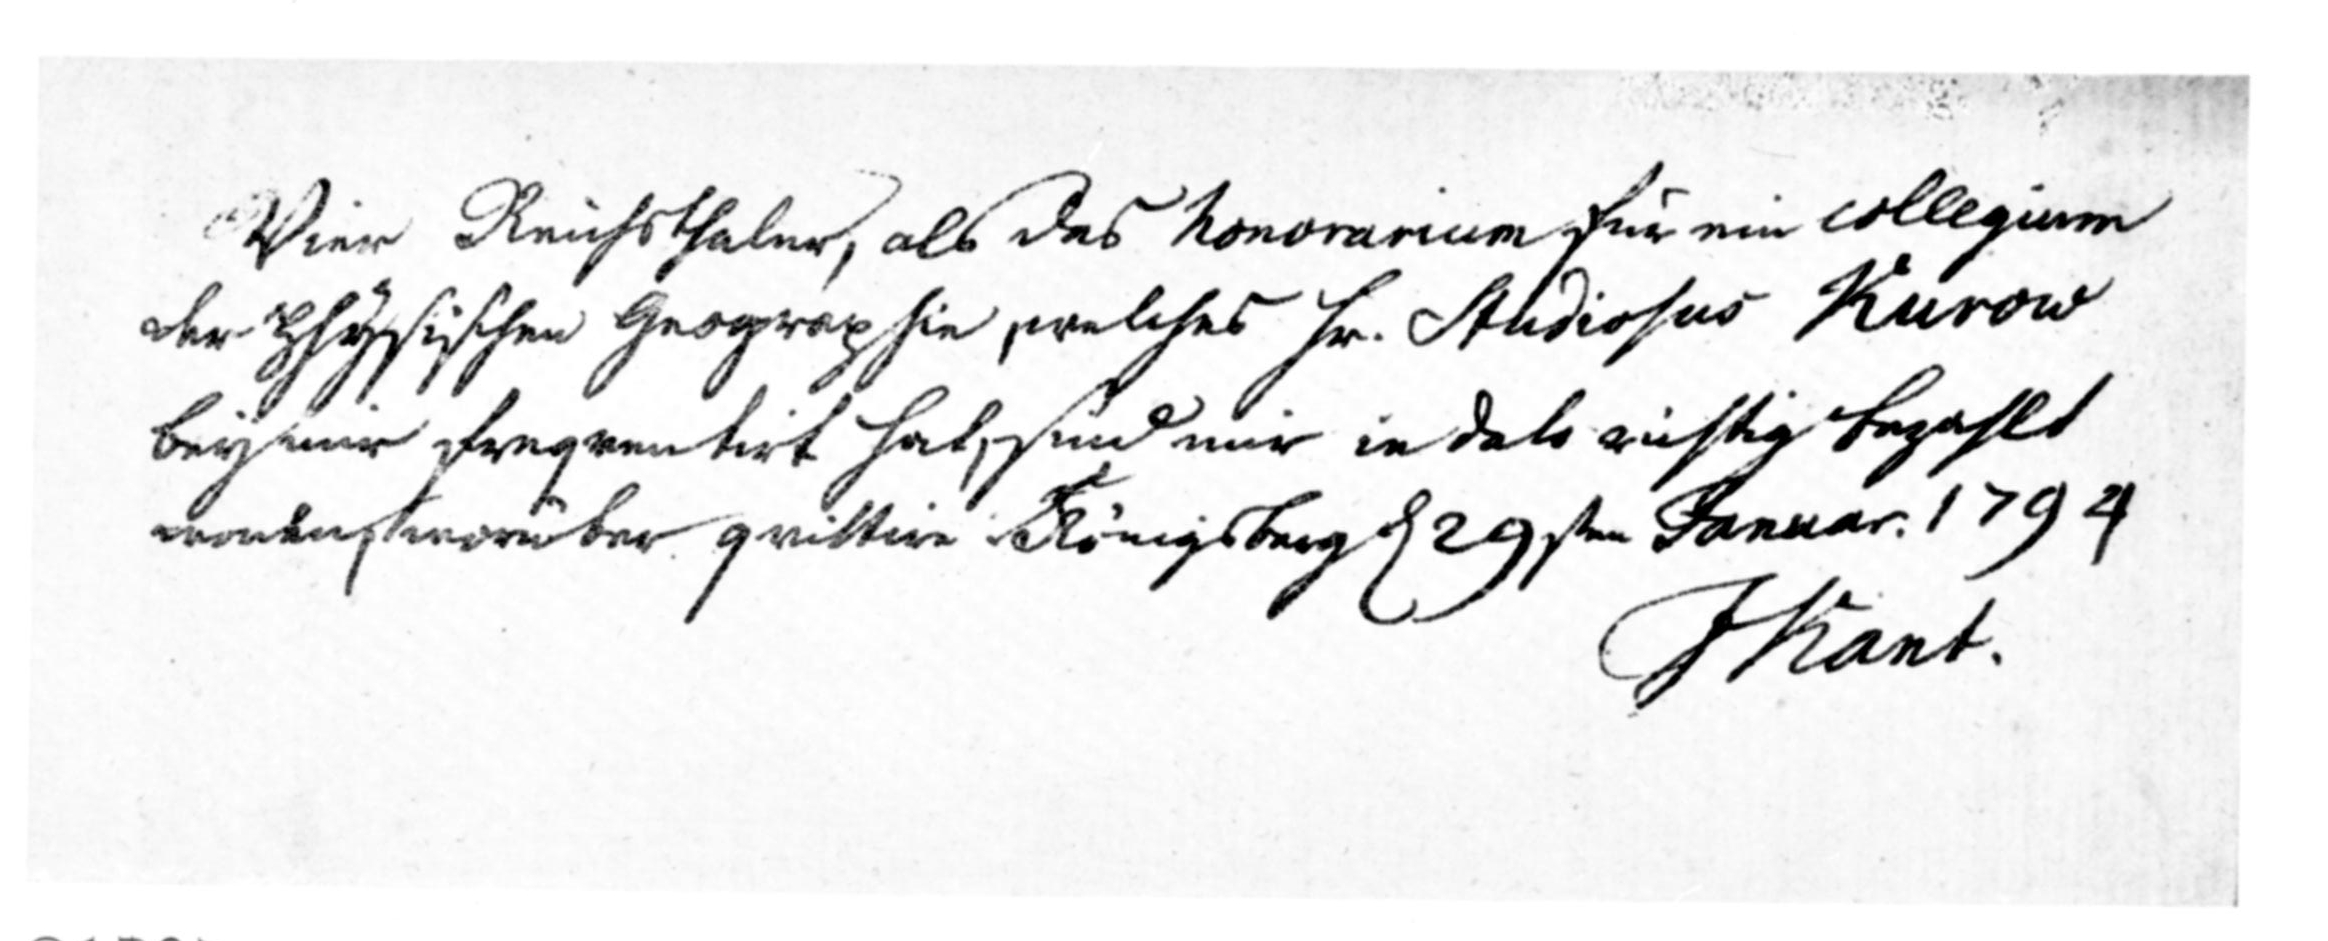 Vier Reichsthaler, als das honorarium für ein collegium
der Physischen Geographie, welches Hr. Studiosus Kurow
bey mir freqventirt hat, sind mir in dato richtig bezahlt
worden, worüber qvittire Königsberg d 29sten Januar. 1794
JKant.